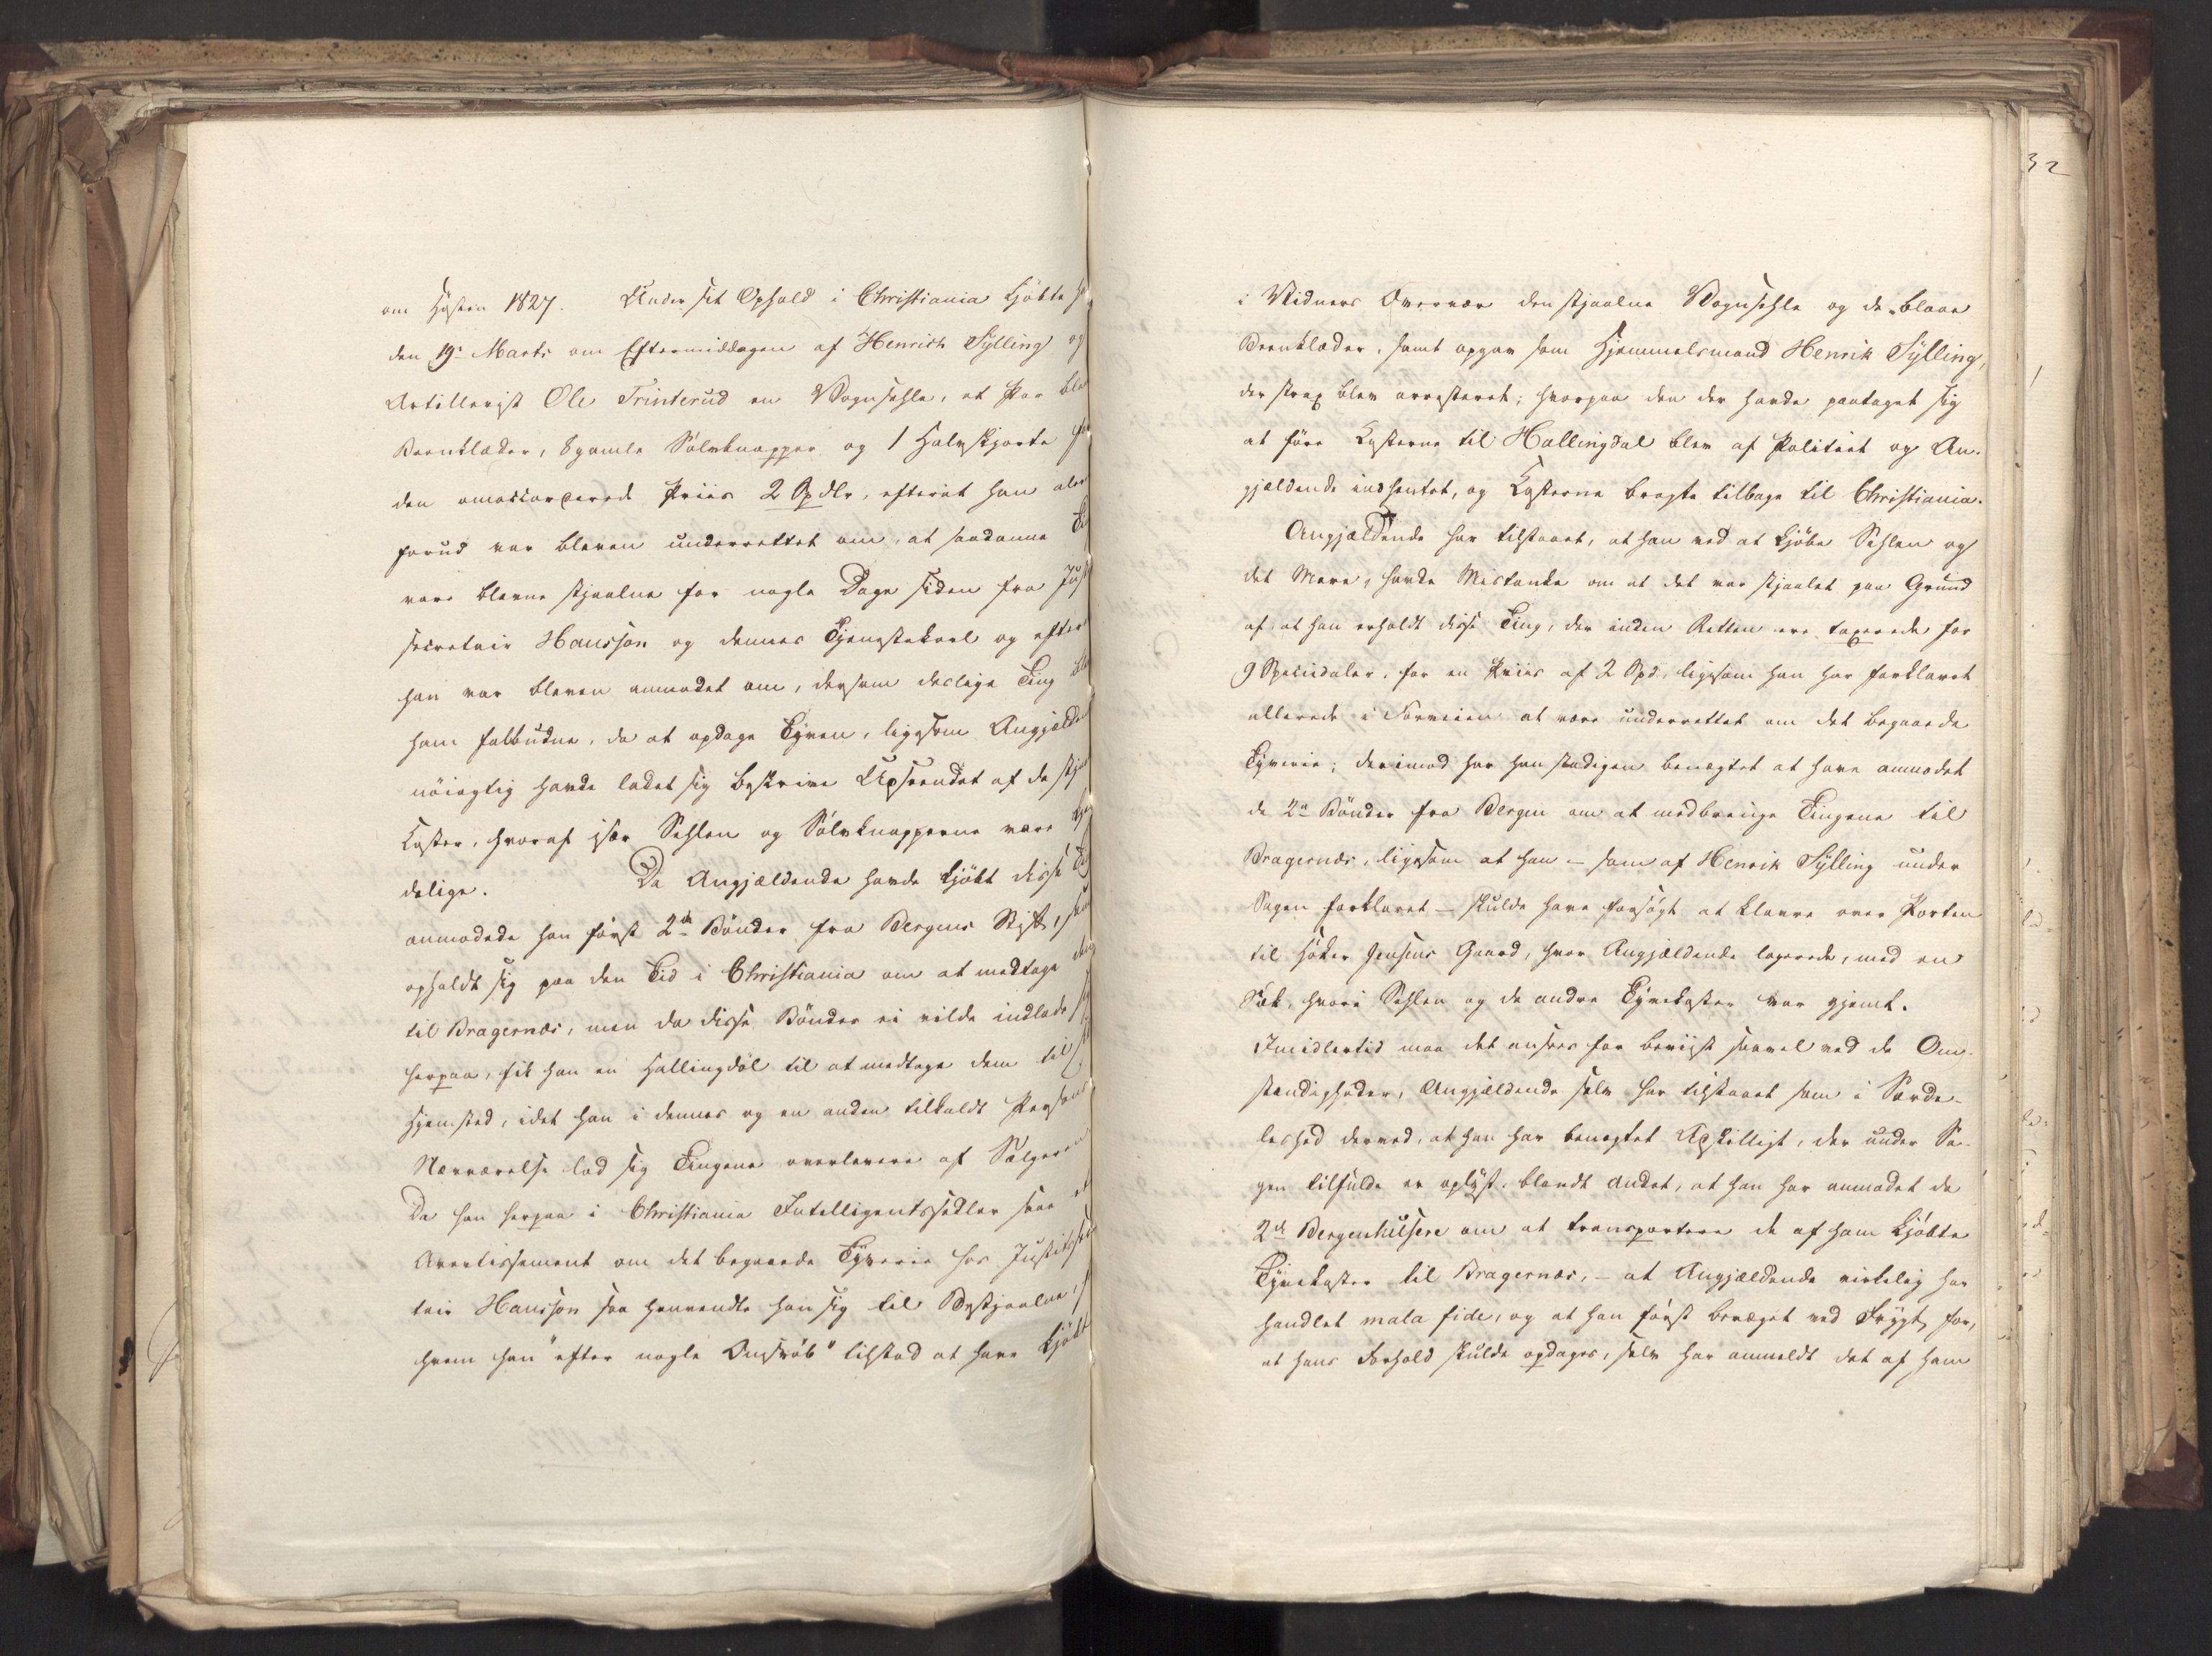 om Høsten 1827. Under sit Ophold i Christiania kjøbte
den 19: Marts om Eftermiddagen af Henrich Sylling og
Artillerist Ole Trinterud en Vognsehle, et Par
Beenklæder, 8 gamle Sølvknapper og 1 Halvskjorte for
den omaccorderede Priis 2 Spdlr, efterat han
forud var bleven underrettet om, at saadanne
vare blevne stjaalne for nogle Dage siden fra
secretair Hansson og dennes Tjenestekarl og
han var bleven anmodet om, dersom deslige Ting
ham falbudne, da at opdage Tyven, ligesom
nøiagtig havde ladet sig beskrive Udseendet af de
Koster, hvoraf især Sehlen og Sølvknapperne vare
delige. Da Angjældende havde kjøbt disse
anmodede han først 2de Bønder fra Bergens Stift,
opholdt sig paa den Tid i Christiania om at medtage
til Bragernæs, men da disse Bønder ei vilde indlade
herpaa, fik han en Hallingdøl til at medtage dem til
Hjemsted, idet han i dennes og en anden tilkaldt
Nærværelse lod sig Tingene overlevere af
Da han herpaa i Christiania Intelligentssedler saae
Avertissement om det begaaede Tyverie hos
tair Hansson saa henvendte han sig til Bestjaalne,
hvem han "efter nogle Omsvøb" tilstod at have kjøbt
32
i Vidners Overvær den stjaalne Vognsehle og de blaae
Beenklæder, samt opgav som Hjemmelsmand Henrik Sylling,
der strax blev arresteret; hvorpaa den der havde paataget sig
at føre Kosterne til Hallingdal blev af Politiet og An-
gjældende indhentet, og Kosterne bragte tilbage til Christiania.
Angjældende har tilstaaet, at han ved at kjøbe Sehlen og
det Mere, havde Mistanke om at det var stjaalet paa Grund
af at han erholdt disse Ting, der inden Retten ere taxerede for
9 Speciedaler, for en Priis af 2 Spd. ligesom han har forklaret
allerede i Forveien at være underrettet om det begaaede
Tyverie; derimod har han stadigen benægtet at have anmodet
de 2de Bønder fra Bergen om at medbringe Tingene til
Bragernæs, ligesom at han – som af Henrik Sylling under
Sagen forklaret – skulde have forsøgt at klavre over Porten
til Høker Jensens Gaard, hvor Angjældende logerede, med en
Sæk, hvori Sehlen og de andre Tyvekoster var gjemt.
Imidlertid maa det ansees for beviist saavel ved de Om-
stændigheder, Angjældende selv har tilstaaet som i Særde-
leshed derved, at han har benægtet Adskilligt, der under Sa-
gen tilfulde er oplyst, blandt Andet, at han har anmodet de
2de Bergenhusere om at transportere de af ham kjøbte
Tyvekoster til Bragernæs, – at Angjældende virkelig har
handlet mala fide, og at han først bevæget ved Frygt for,
at hans Forhold skulde opdages, selv har anmeldt det af ham